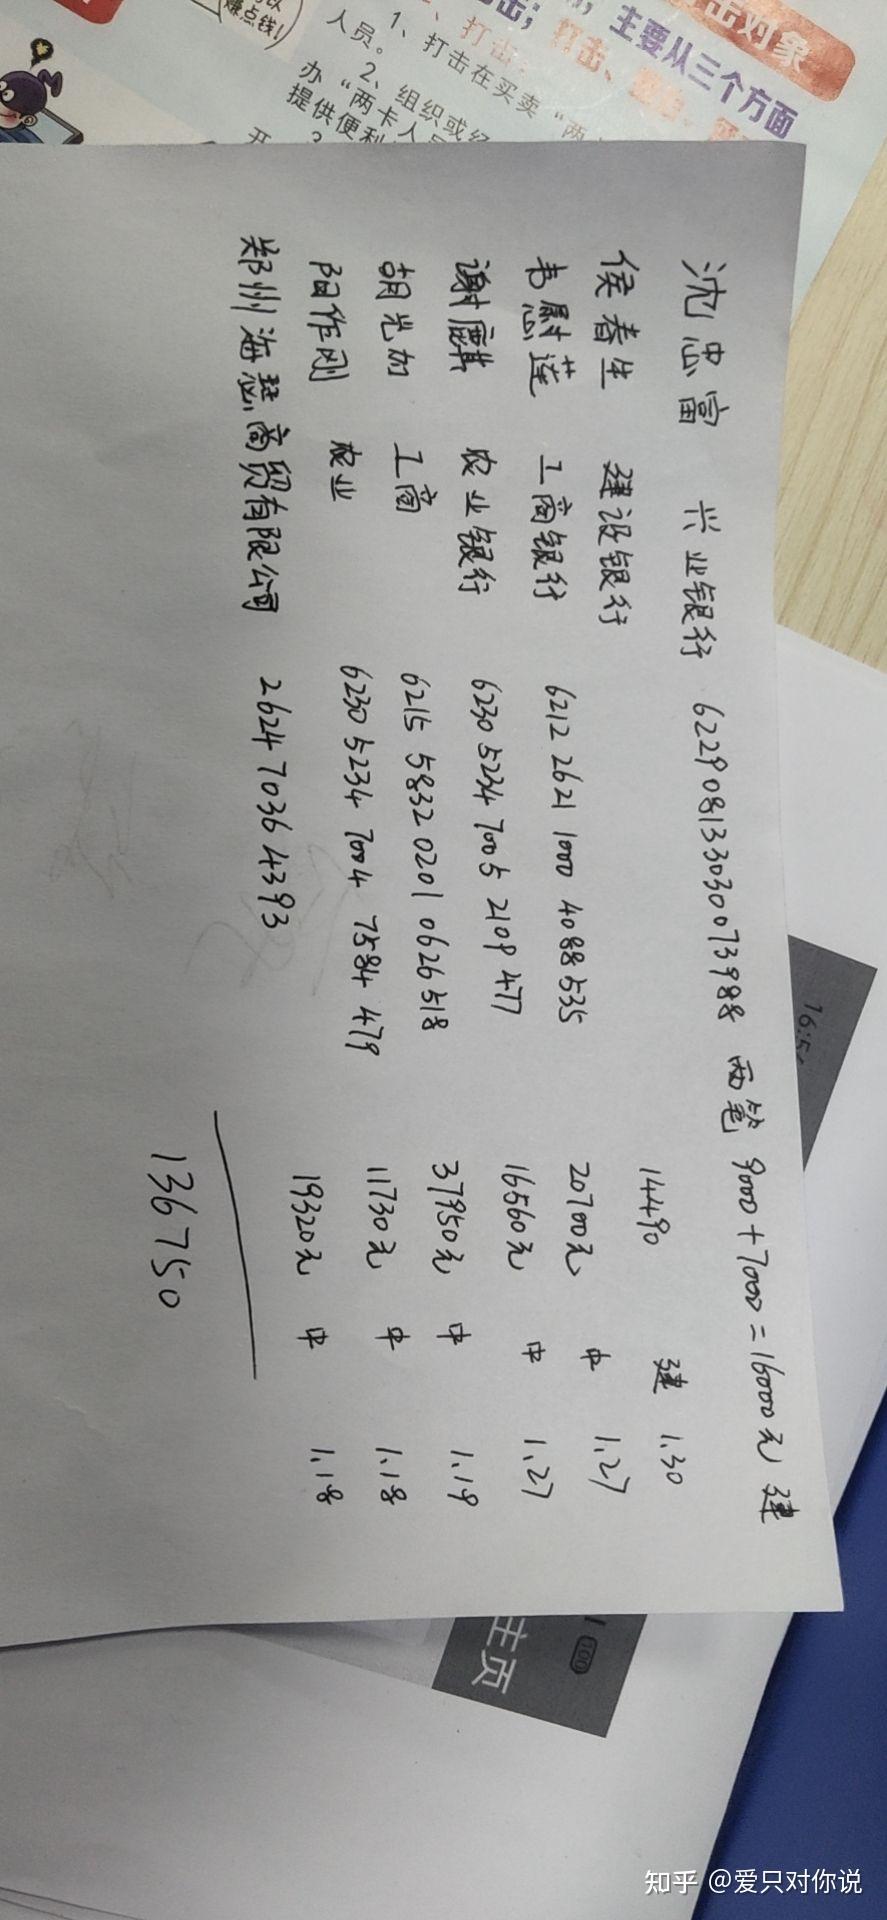 击对象
主要从三个方面
打击、
1、打击在买卖“两
人员。
2、组织或经
办“两卡人员
提供便利
赚点钱!
沈忠富 兴业银行 622908133030073988 两笔 9000+7000=16000元 建
侯春生 建设银行 14490 建 1.30
韦慰莲 工商银行 6212 2621 1000 4088 535 20700元 中 1.27
谢麒 农业银行 6230 5234 7005 2109 477 16560元 中 1.27
胡光加 工商 6215 5832 0201 0626 518 37950元 中 1.19
阳作刚 农业 6230 5234 7004 7584 479 11730元 中 1.18
郑州海惒商贸有限公司 2624 7036 4393 19320元 中 1.18
136750
16:5
主页
100
知乎 @爱只对你说